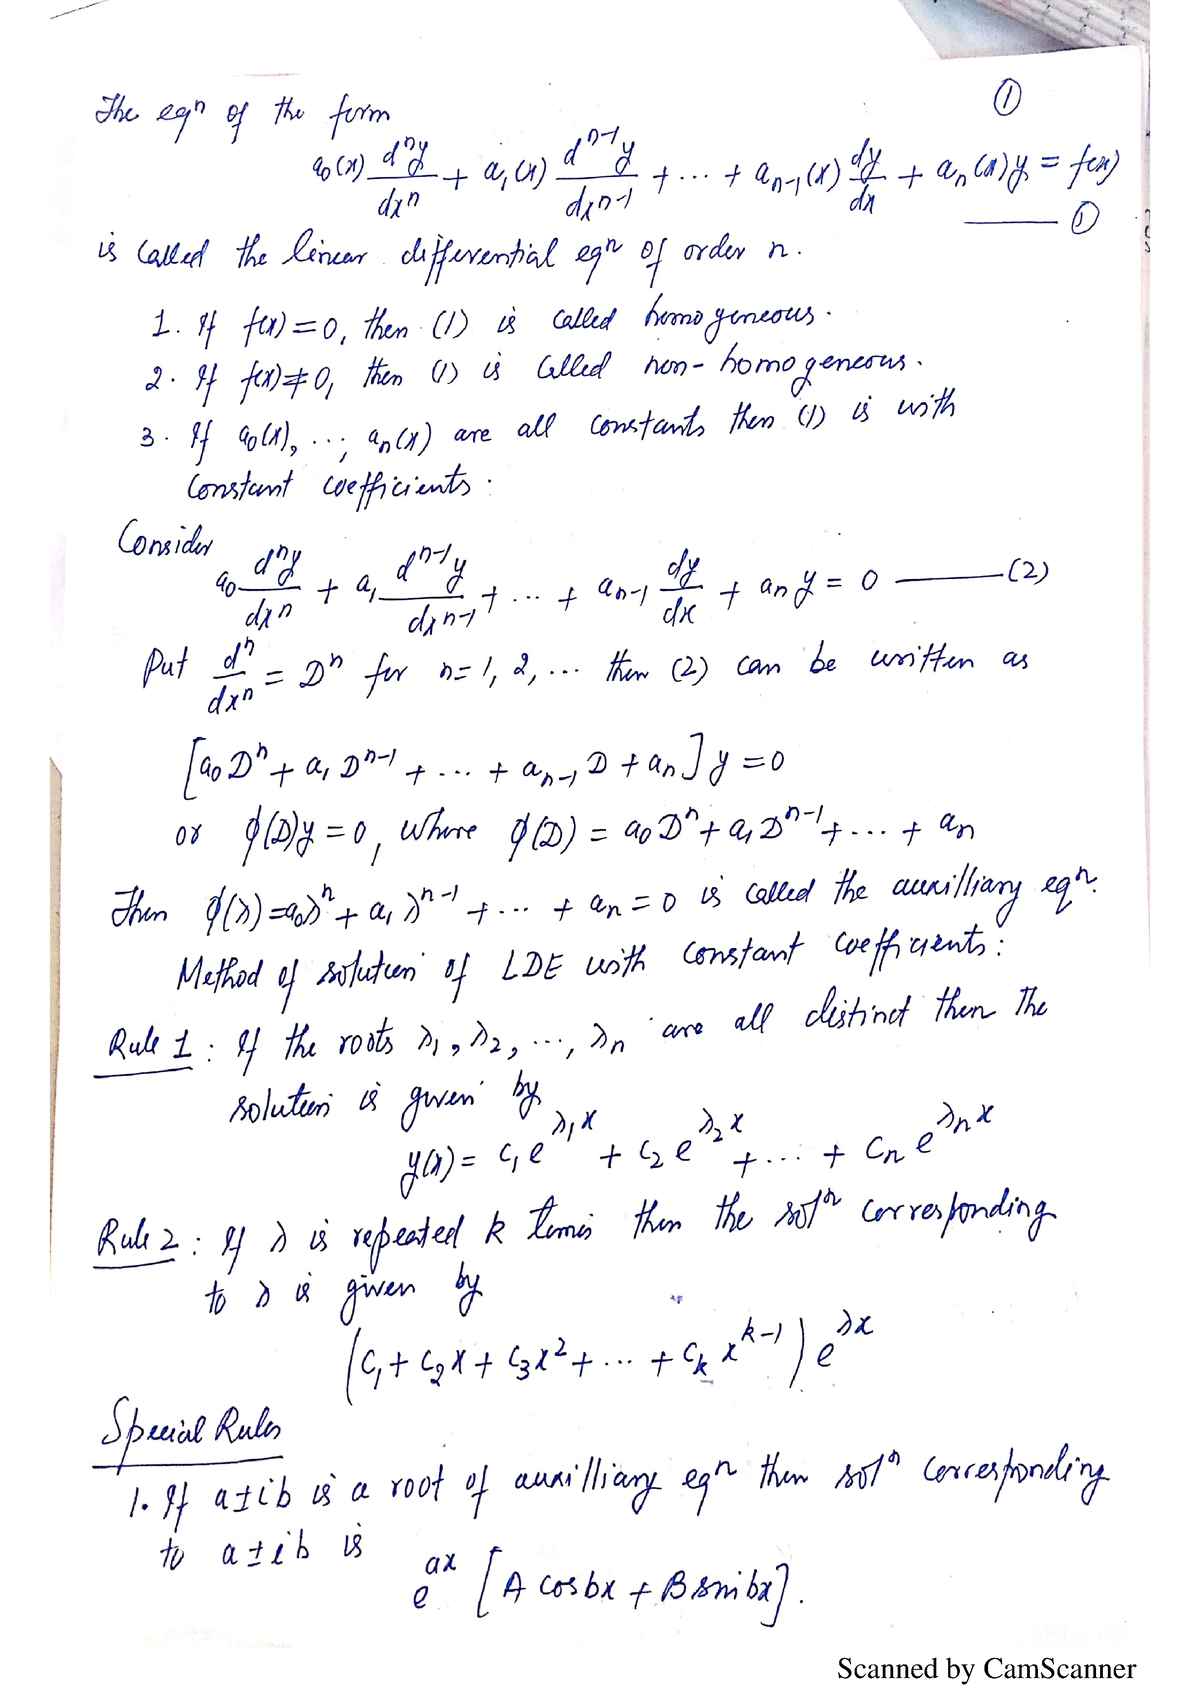 ①
The eqⁿ of the form
a₀(x) dⁿy/dxⁿ + a₁(x) dⁿ⁻¹y/dxⁿ⁻¹ + ... + aₙ₋₁(x) dy/dx + aₙ(x)y = f(x)
—— ①
is called the linear differential eqⁿ of order n.
1. If f(x) = 0, then (1) is called homogeneous.
2. If f(x) ≠ 0, then (1) is called non-homogeneous.
3. If a₀(x), ..., aₙ(x) are all constants then (1) is with
constant coefficients.
Consider
a₀ dⁿy/dxⁿ + a₁ dⁿ⁻¹y/dxⁿ⁻¹ + ... + aₙ₋₁ dy/dx + aₙ y = 0 —— (2)
Put dⁿ/dxⁿ = Dⁿ for n = 1, 2, ... then (2) can be written as
[a₀Dⁿ + a₁Dⁿ⁻¹ + ... + aₙ₋₁D + aₙ] y = 0
or ϕ(D)y = 0, where ϕ(D) = a₀Dⁿ + a₁Dⁿ⁻¹ + ... + aₙ
Then ϕ(λ) = a₀λⁿ + a₁λⁿ⁻¹ + ... + aₙ = 0 is called the auxilliary eqⁿ.
Method of solution of LDE with constant coefficients:
Rule 1: If the roots λ₁, λ₂, ..., λₙ are all distinct then the
solution is given by
y(x) = c₁e^{λ₁x} + c₂e^{λ₂x} + ... + cₙe^{λₙx}
Rule 2: If λ is repeated k times then the solⁿ corresponding
to λ is given by
(c₁ + c₂x + c₃x² + ... + cₖ x^{k-1}) e^{λx}
Special Rules
1. If a±ib is a root of auxilliary eqⁿ then solⁿ corresponding
to a±ib is
e^{ax} [A cosbx + B sinbx].
Scanned by CamScanner